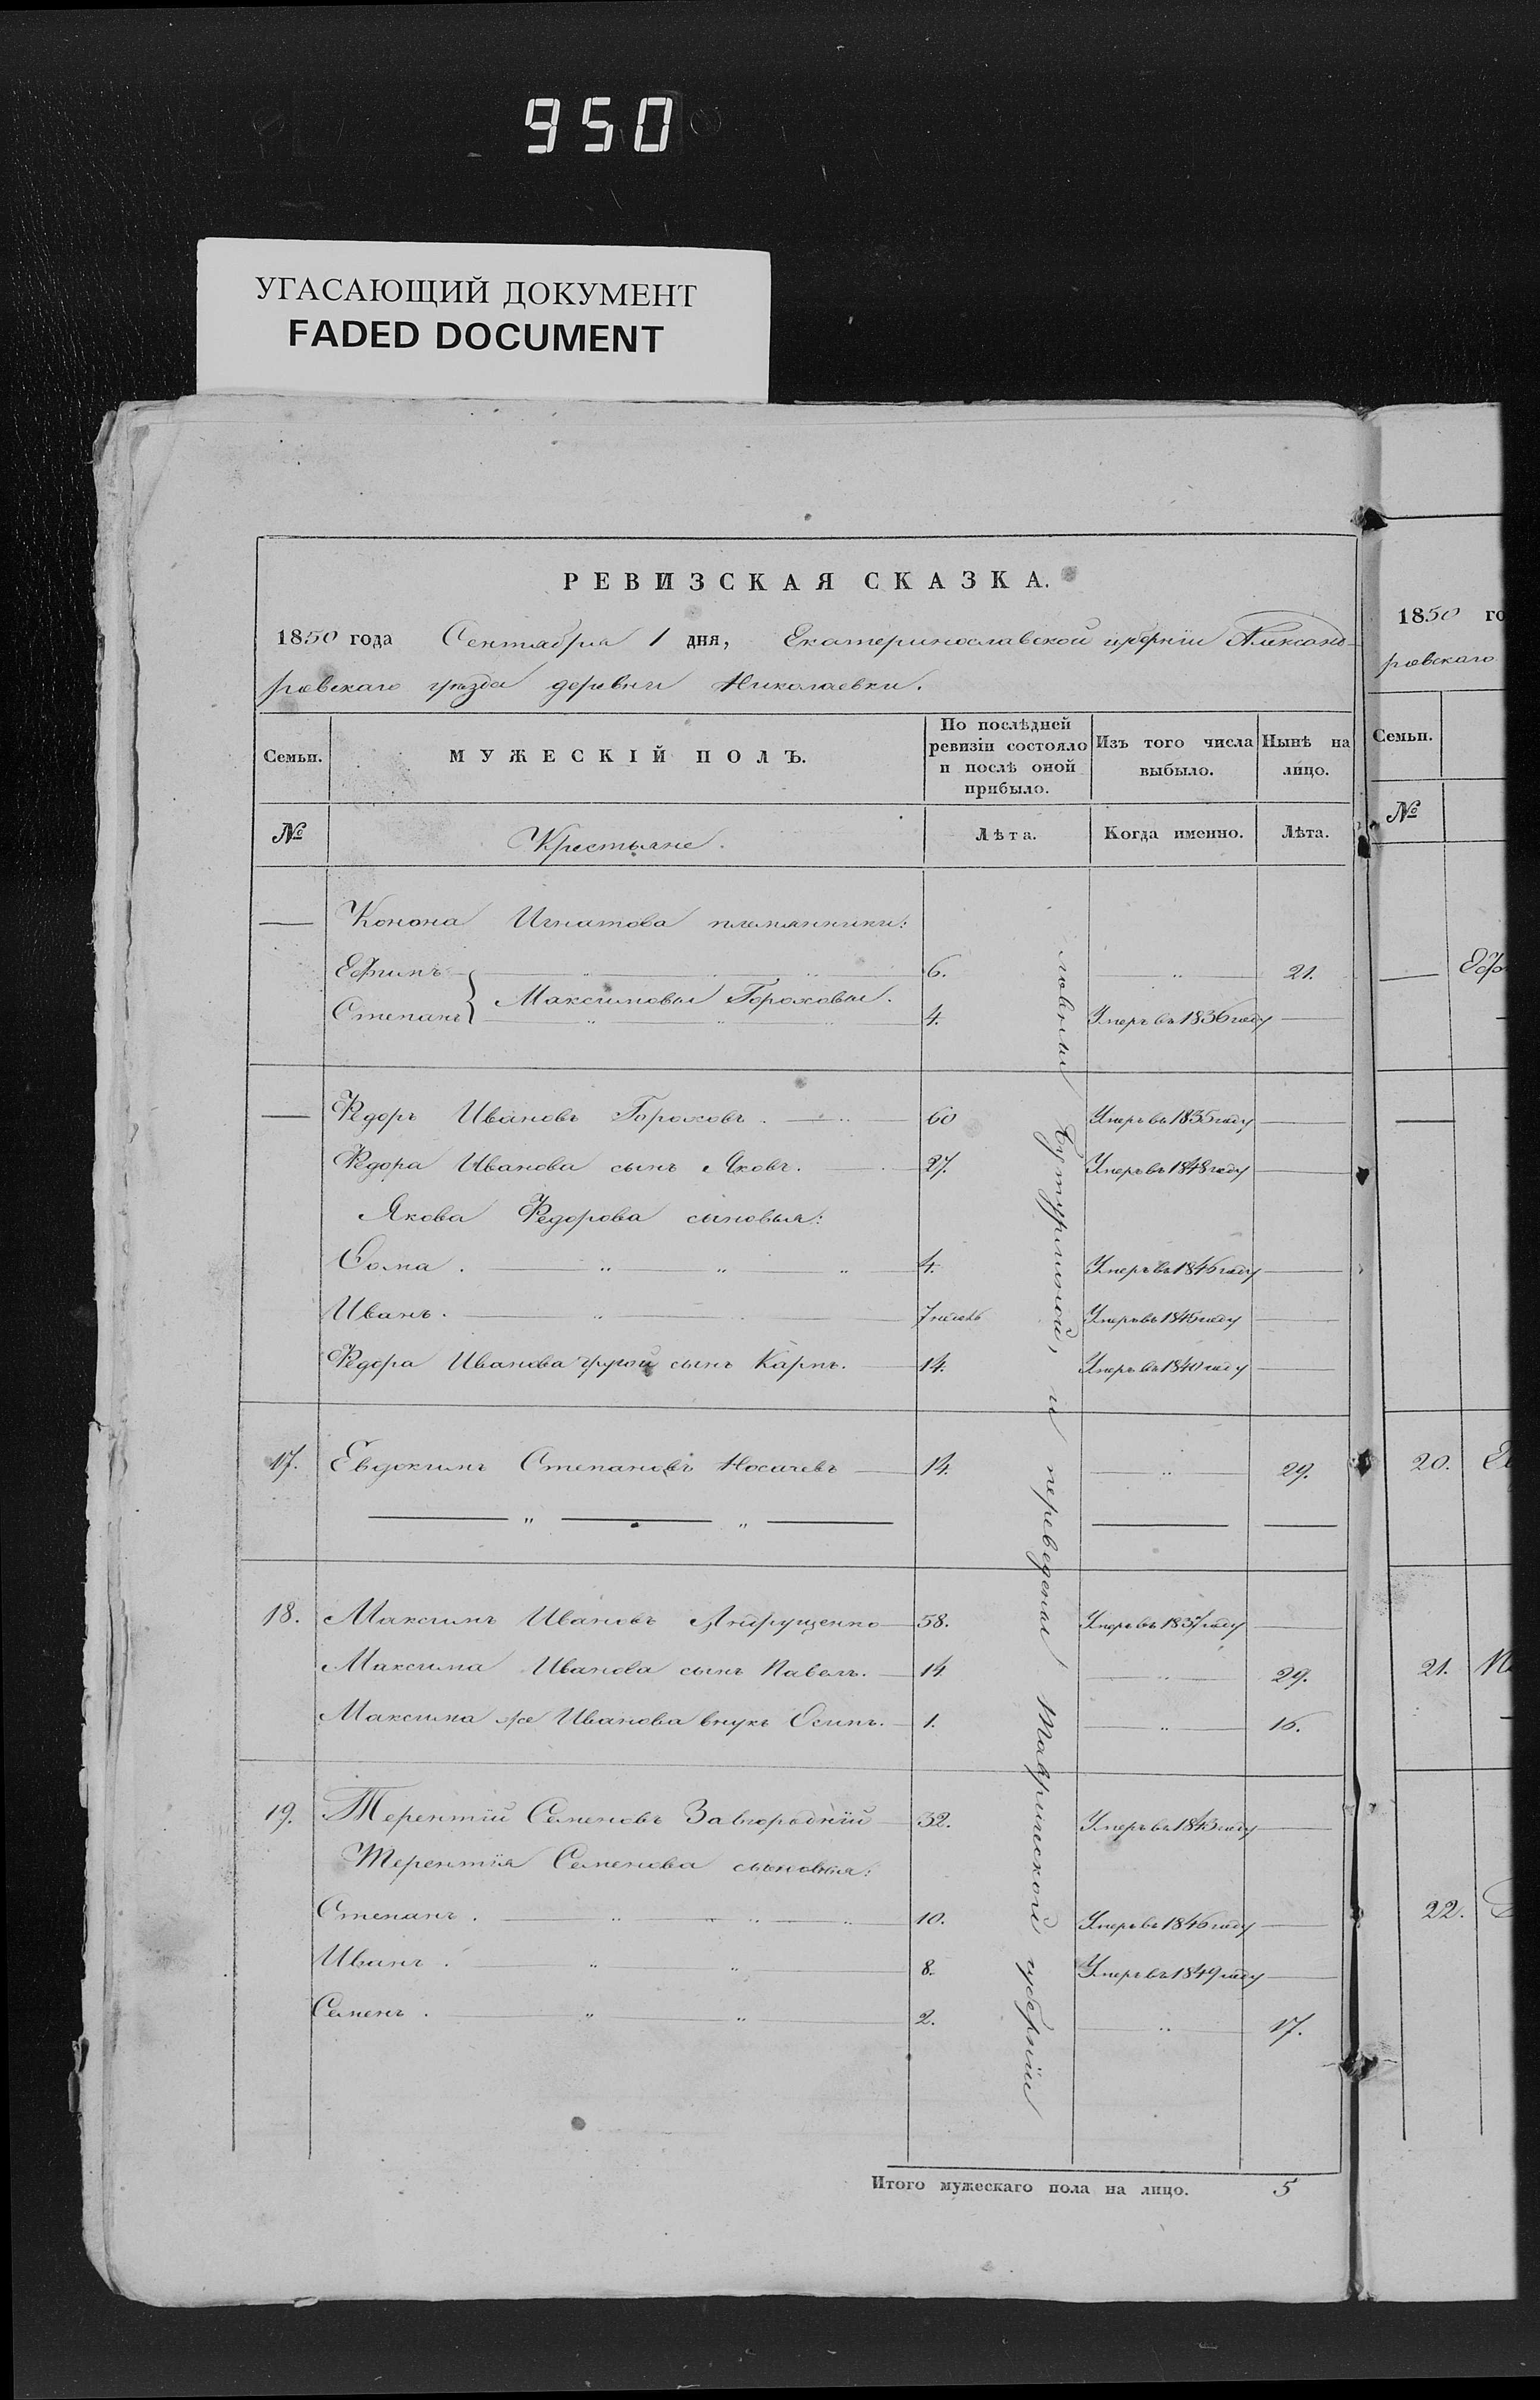 950
УГАСАЮЩИЙ ДОКУМЕНТ
FADED DOCUMENT
РЕВИЗСКАЯ СКАЗКА.
1850 года Сентября 1 дня, Екатеринославской губерніи Александ-
ровскаго уѣзда деревни Николаевки.
Семьи. МУЖЕСКІЙ ПОЛЪ. По послѣдней ревизіи состояло и послѣ оной прибыло. Изъ того числа выбыло. Нынѣ на лицо.
№ Крестьяне. Лѣта. Когда именно. Лѣта.
— Конона Игнатова племянники:
Ефимъ 6. 21.
Максимовы Гороховы.
Степанъ 4. Умеръ въ 1836 году —
— Федоръ Ивановъ Гороховъ. 60 Умеръ въ 1835 году —
Федора Иванова сынъ Яковъ. 27. Умеръ въ 1848 году —
Якова Федорова сыновья:
Фома. 4. Умеръ въ 1846 году —
Иванъ. 7 Умеръ въ 1845 году —
Федора Иванова другой сынъ Карпъ. 14. Умеръ въ 1840 году —
17. Евдокимъ Степановъ Носачевъ 14. 29.
18. Максимъ Ивановъ Андрущенко 58. Умеръ въ 1837 году —
Максима Иванова сынъ Павелъ. 14 29.
Максима же Иванова внукъ Осипъ. 1. 16.
19. Терентій Семеновъ Завгородній 32. Умеръ въ 1843 году —
Терентія Семенова сыновья:
Степанъ. 10. Умеръ въ 1846 году —
Иванъ. 8. Умеръ въ 1849 году —
Семенъ. 2. 17.
Итого мужескаго пола на лицо. 5
ловны Бутурлиной, и переведены Таврической губерніи
1850 го
ровскаго
Семьи.
№
— Ефи
20. Ев
21.
22.